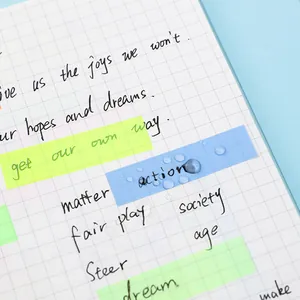 ive us the joys we won't.
ur hopes and dreams.
get our own way.
matter action
fair play society
Steer age
dream
make